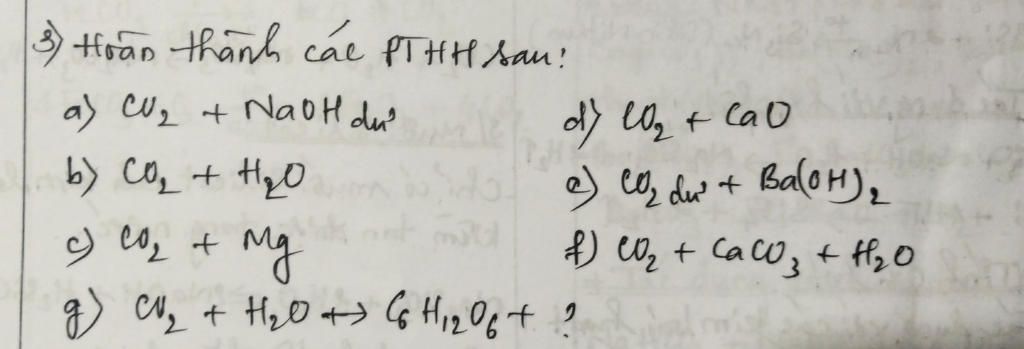 3) Hoàn thành các PTHH sau:
a) CO2 + NaOH dư
d) CO2 + CaO
b) CO2 + H2O
e) CO2 dư + Ba(OH)2
c) CO2 + Mg
f) CO2 + CaCO3 + H2O
g) CO2 + H2O → C6H12O6 + ?